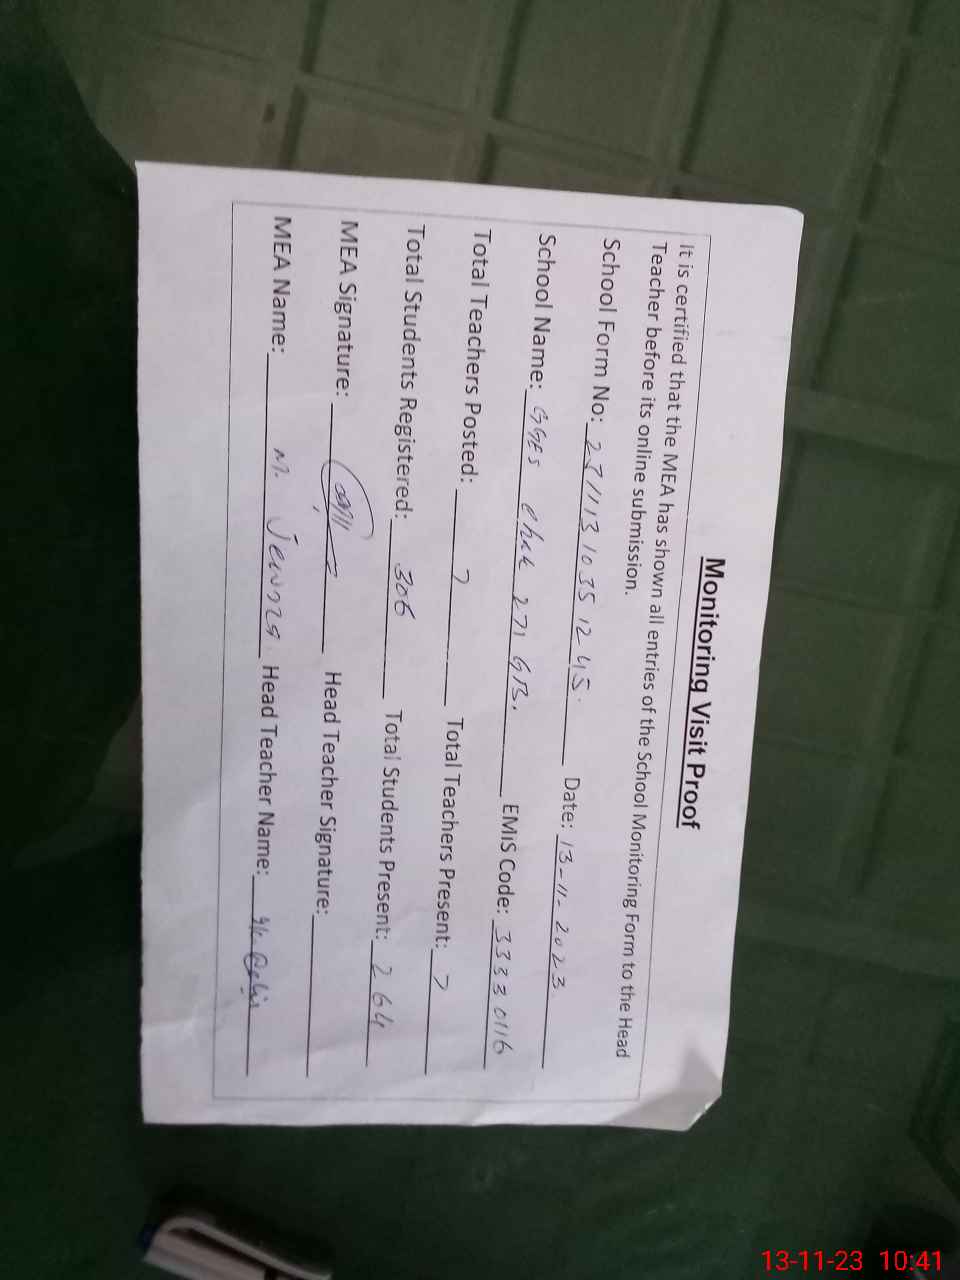 Monitoring Visit Proof
It is certified that the MEA has shown all entries of the School Monitoring Form to the Head
Teacher before its online submission.
School Form No: Date: 13-11-2023
School Name: GGES Chak 271 GB. EMIS Code: 33330116
Total Teachers Posted: 7 Total Teachers Present: 7
Total Students Registered: 306 Total Students Present: 264
MEA Signature: Head Teacher Signature:
MEA Name: M. Head Teacher Name:
13-11-23 10:41